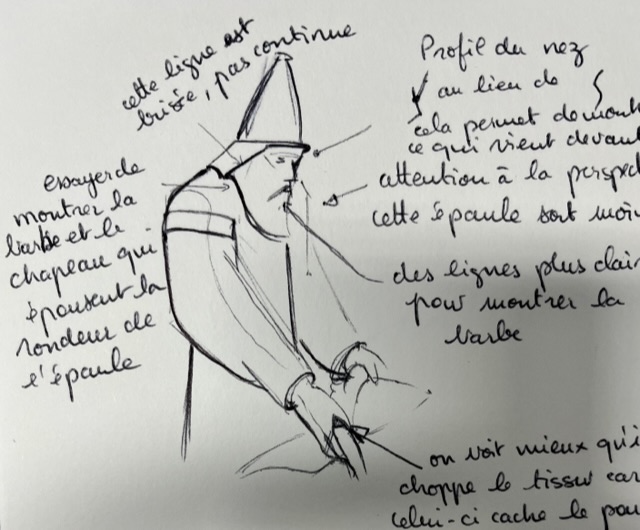 cette ligne est
brisée, pas continue
Profil du nez
au lieu de
cela permet de mont
ce qui vient devant
attention à la perspect
cette épaule sort moin
essayer de
montrer la
barbe et le
chapeau qui
épousent la
rondeur de
l'épaule
des lignes plus clair
pour montrer la
barbe
on voit mieux qu'i
choppe le tissu car
celui-ci cache le pou